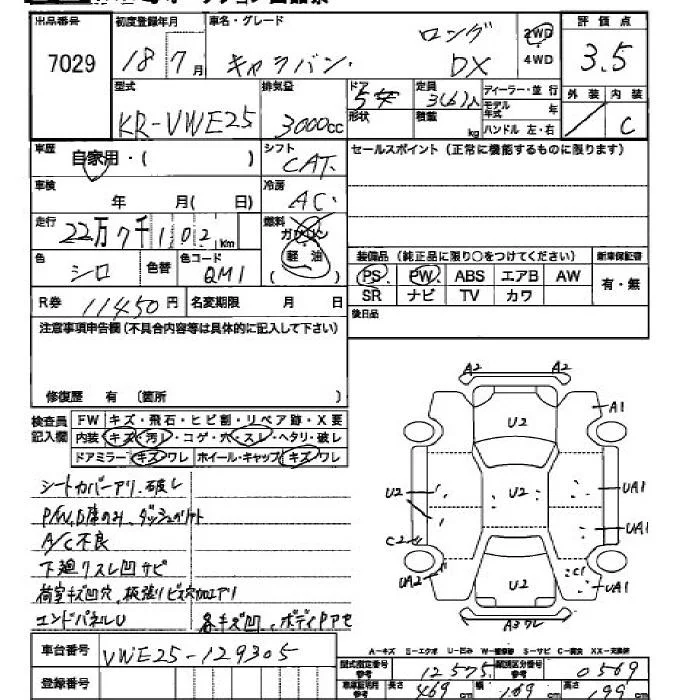 出品番号 初度登録年月 車名・グレード 評価点
7029 18年7月 キャラバン ロング DX 2WD 4WD 3.5
型式 排気量 ドア 定員 ディーラー・並行 外装 内装
KR-VWE25 3000cc 5 3(6)人 モデル年式 年 C
形状 積載 kg ハンドル 左・右
車歴 自家用・( ) シフト CAT セールスポイント(正常に機能するものに限ります)
車検 年 月( 日) 冷房 AC
走行 22万7千102km 燃料 ガソリン 軽油 ( )
色 シロ 色替 色コード QM1
装備品(純正品に限り○をつけてください) 新車保証書
PS PW ABS エアB AW 有・無
SR ナビ TV カワ
R券 11450円 名変期限 月 日
後日品
注意事項申告欄(不具合内容等は具体的に記入して下さい)
修復歴 有 (箇所 )
検査員記入欄 FW キズ・飛石・ヒビ割・リペア跡・X要
内装 キズ・汚レ・コゲ・穴・スレ・ヘタリ・破レ
ドアミラー キズ ワレ ホイール・キャップ キズ ワレ
シートカバーアリ.破レ
P/W,D席のみ.ダッシュ
A/C不良
下廻リスレ凹サビ
荷室キズ凹穴、板張リビス穴加工アリ
エンドパネルU 各キズ凹、ボディPアセ
A2 A2
U2 A1
U2 U2 UA1
C2 UA1
UA2 U2 C1 UA1
A3ワレ
A-キズ E-エクボ U-凹み W-補修跡 S-サビ C-腐食 XX-交換済
車台番号 VWE25-129305
型式指定番号 参考 12575 類別区分番号 参考 0569
登録番号
長さ 469 cm 幅 169 cm 高さ 199 cm